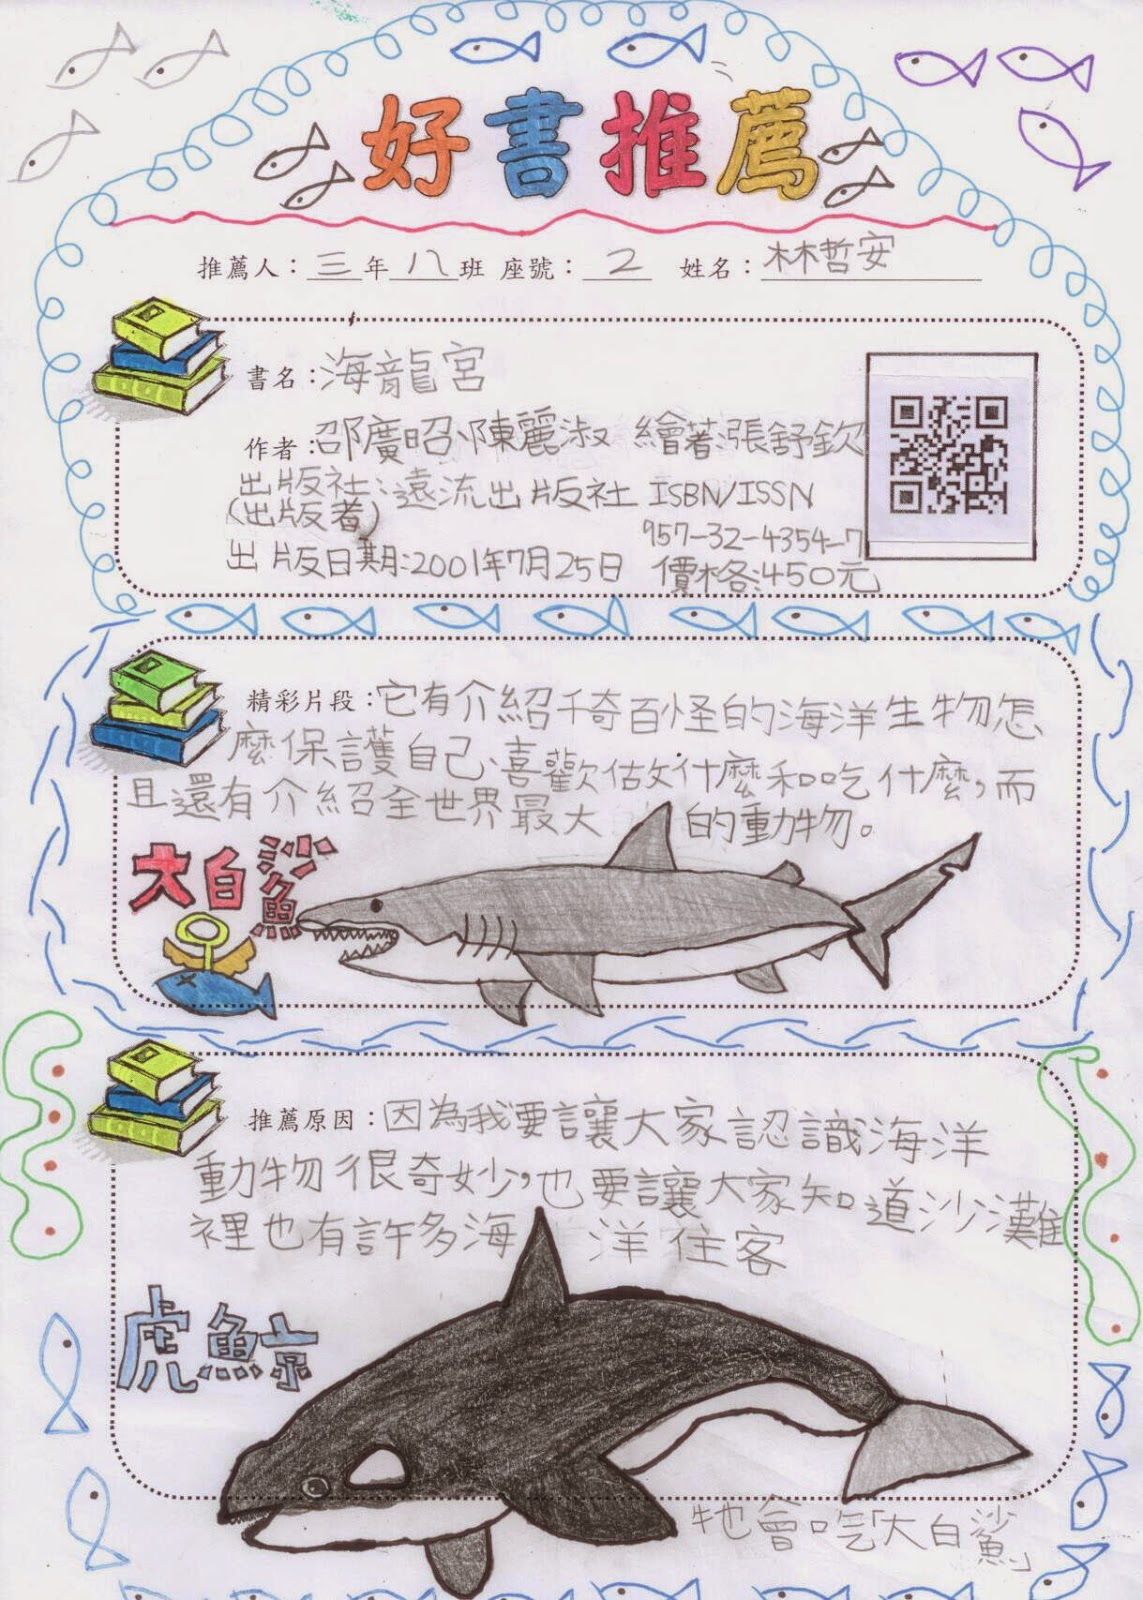 好書推薦
推薦人：三年八班 座號：2 姓名：林哲安
書名：海龍宮
作者：邵廣昭、陳麗淑 繪著：張舒欽
出版社：遠流出版社 ISBN/ISSN
(出版者)
957-32-4354-7
出版日期：2001年7月25日 價格：450元
精彩片段：它有介紹千奇百怪的海洋生物怎
麼保護自己、喜歡做什麼和吃什麼，而
且還有介紹全世界最大的動物。
大白鯊
推薦原因：因為我要讓大家認識海洋
動物很奇妙，也要讓大家知道沙灘
裡也有許多海洋住客
虎鯨
牠會吃「大白鯊」